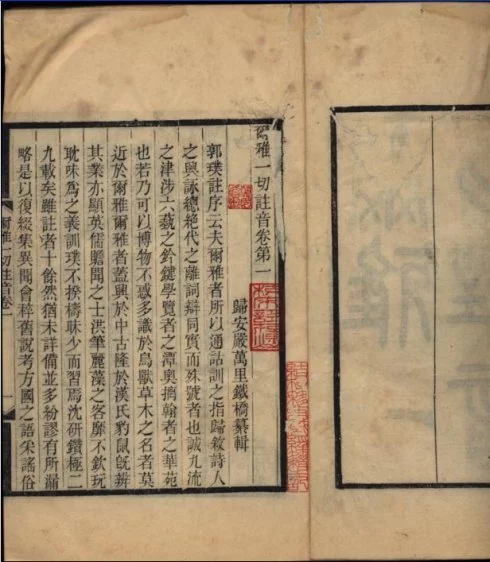 爾雅一切註音卷第一
歸安嚴萬里鐵橋纂輯
郭璞註序云夫爾雅者所以通詁訓之指歸敘詩人
之興詠總絶代之離詞辯同實而殊號者也誠九流
之津涉六藝之鈐鍵學覽者之潭奧摛翰者之華苑
也若乃可以博物不惑多識於鳥獸草木之名者莫
近於爾雅爾雅者蓋興於中古隆於漢氏豹鼠旣辨
其業亦顯英儒贍聞之士洪筆麗藻之客靡不欽玩
耽味爲之義訓璞不揆檮昧少而習焉沈研鑽極二
九載矣雖註者十餘然猶未詳備並多紛謬有所漏
略是以復綴集異聞會稡舊說考方國之語采謠俗
爾雅一切註音卷一
一